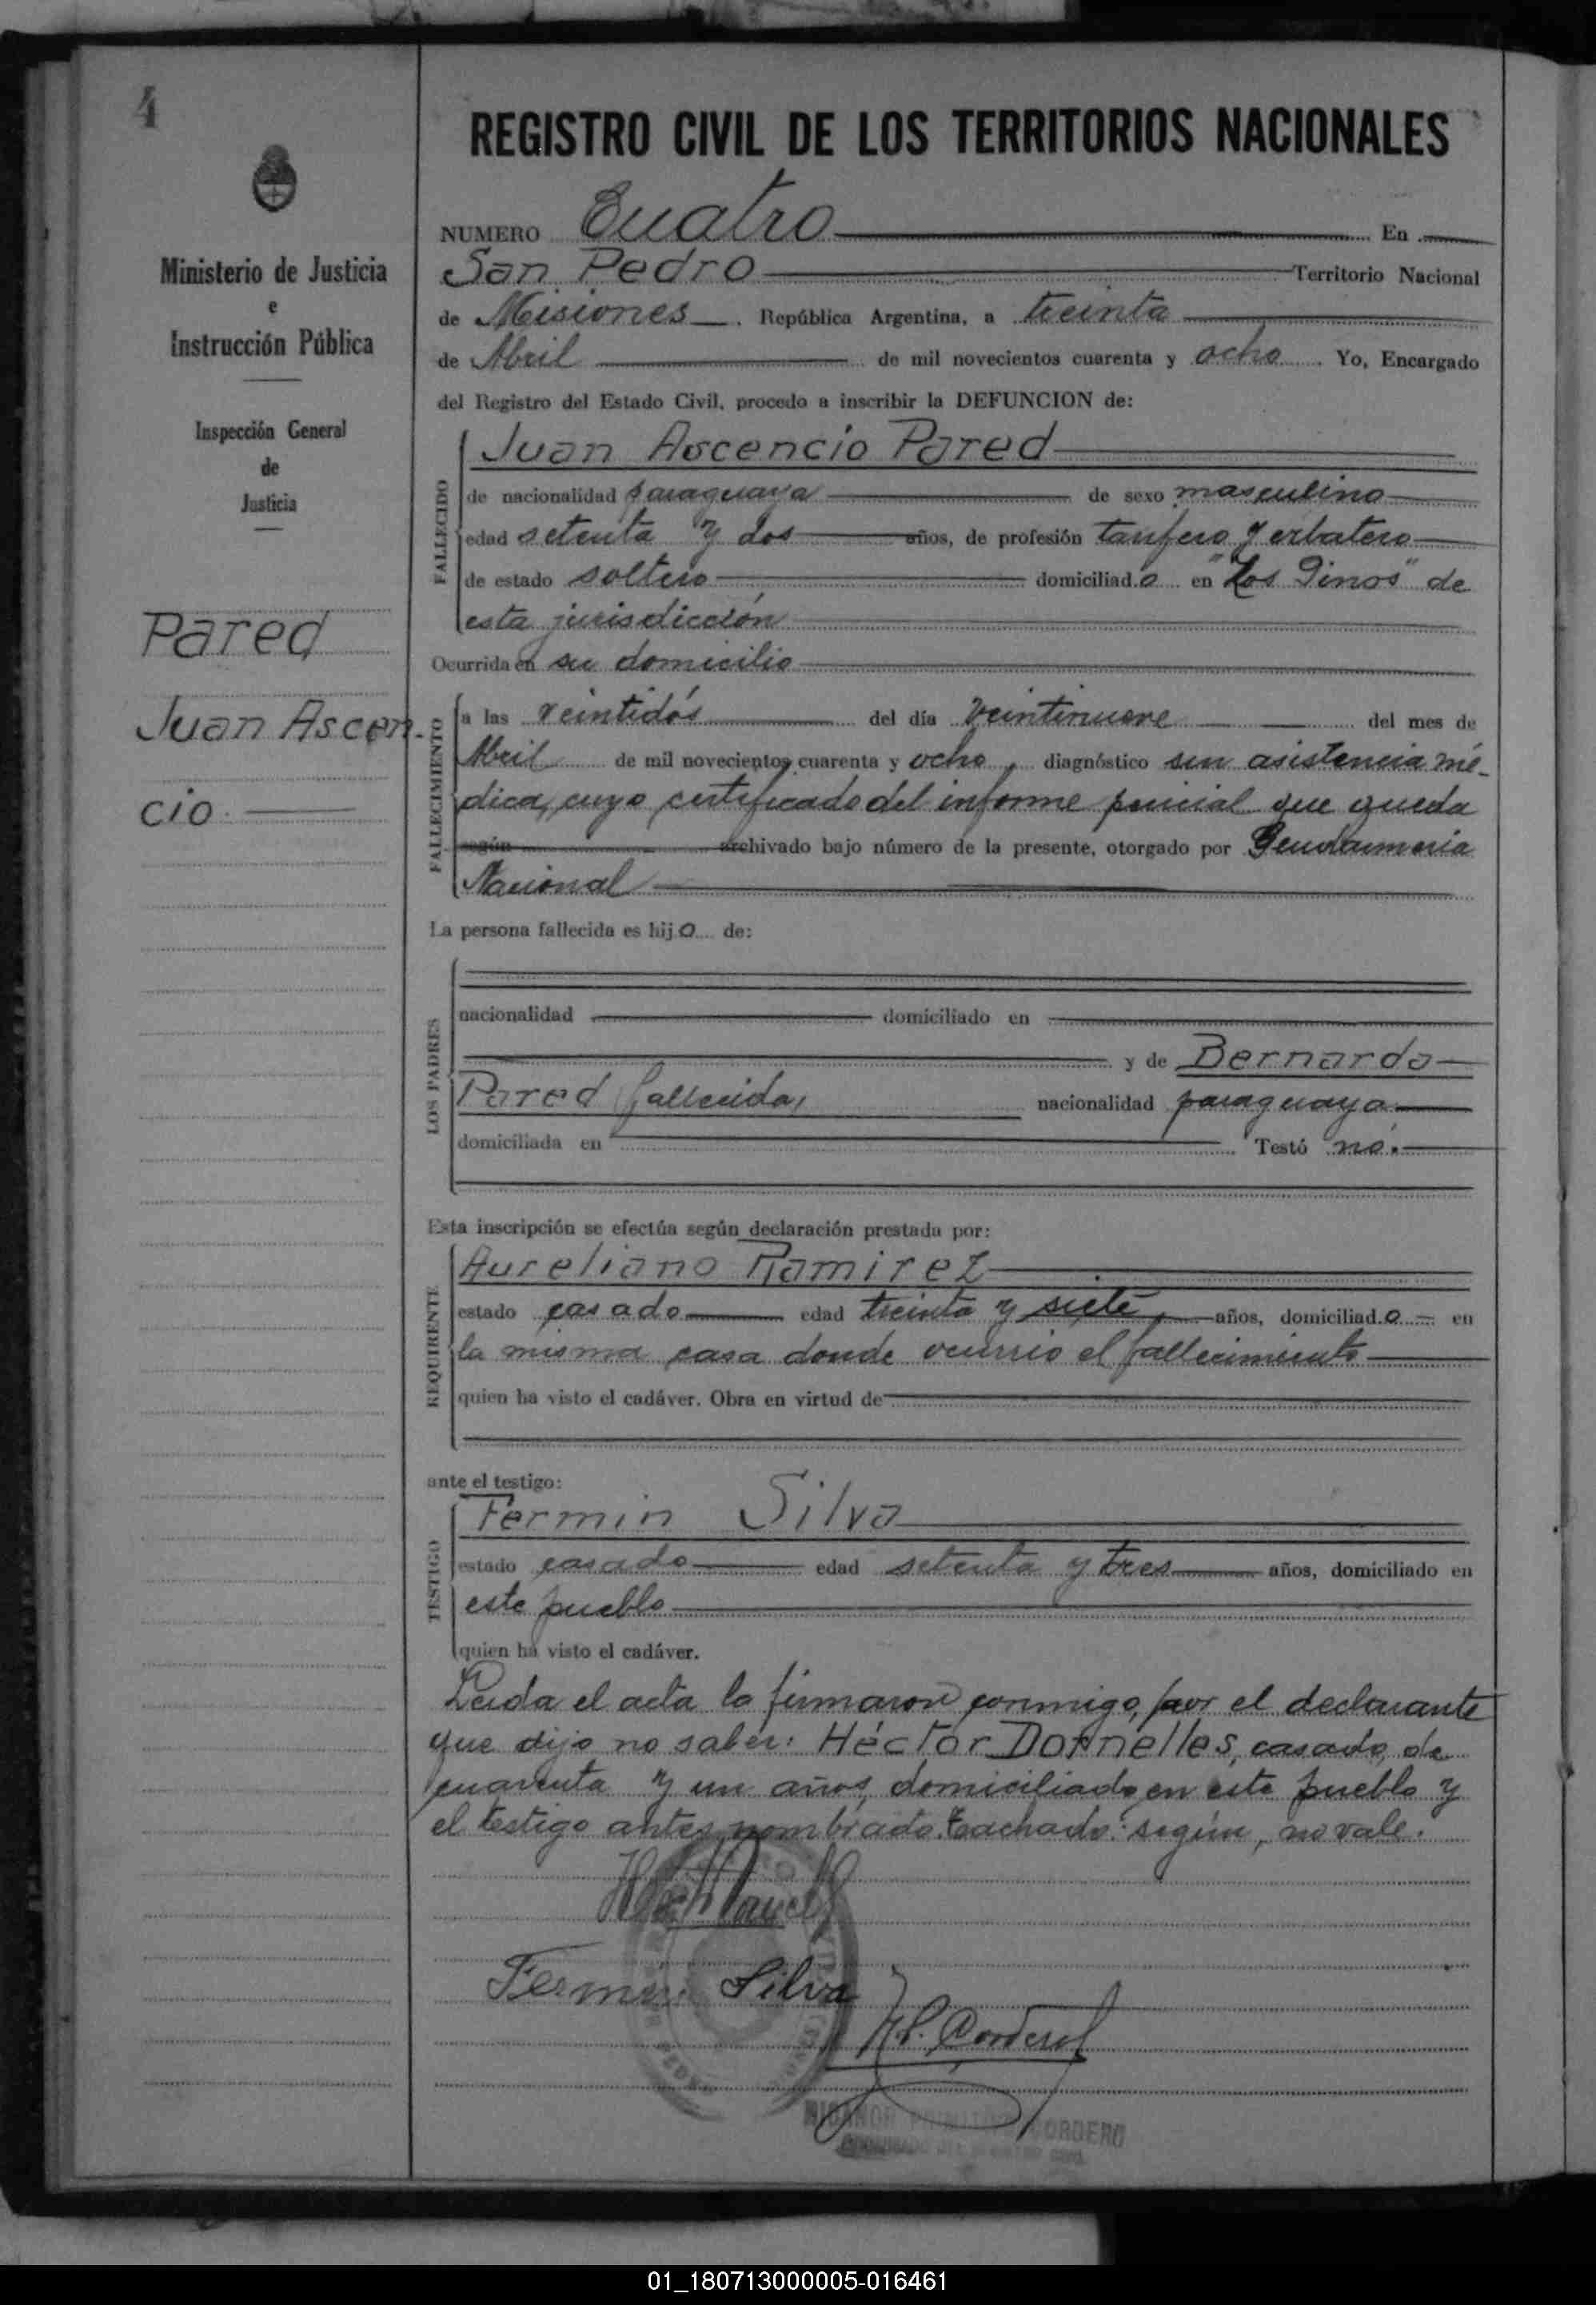 4
REGISTRO CIVIL DE LOS TERRITORIOS NACIONALES
Ministerio de Justicia
e
Instrucción Pública
Inspección General
de
Justicia
Pared
Juan Ascen-
cio
NUMERO Cuatro En
San Pedro Territorio Nacional
de Misiones. República Argentina, a treinta
de Abril de mil novecientos cuarenta y ocho. Yo, Encargado
del Registro del Estado Civil, procedo a inscribir la DEFUNCION de:
FALLECIDO
Juan Ascencio Pared
de nacionalidad paraguaya de sexo masculino
edad setenta y dos años, de profesión tarifero yerbatero
de estado soltero domiciliado en "Los Pinos" de
esta jurisdicción
Ocurrida en su domicilio
FALLECIMIENTO
a las veintidós del día veintinueve del mes de
Abril de mil novecientos cuarenta y ocho, diagnóstico sin asistencia mé-
dica, cuyo certificado del informe que queda
según archivado bajo número de la presente, otorgado por Gendarmeria
Nacional
La persona fallecida es hijo de:
LOS PADRES
nacionalidad domiciliado en
y de Bernarda
Pared fallecida, nacionalidad paraguaya
domiciliada en Testó no.
Esta inscripción se efectúa según declaración prestada por:
REQUIRENTE
Aureliano Ramirez
estado casado edad treinta y siete, años, domiciliado en
la misma casa donde ocurrio el fallecimiento
quien ha visto el cadáver. Obra en virtud de
ante el testigo:
TESTIGO
Fermin Silva
estado casado edad setenta y tres años, domiciliado en
este pueblo
quien ha visto el cadáver.
Leida el acta la firmaron conmigo, por el declarante
que dijo no saber: Héctor Dornelles, casado, de
cuarenta y un años, domiciliado en este pueblo y
el testigo antes nombrado. Tachado: según, no vale.
Fermin Silva
N.P. Cordero
CORDERO
01_180713000005-016461